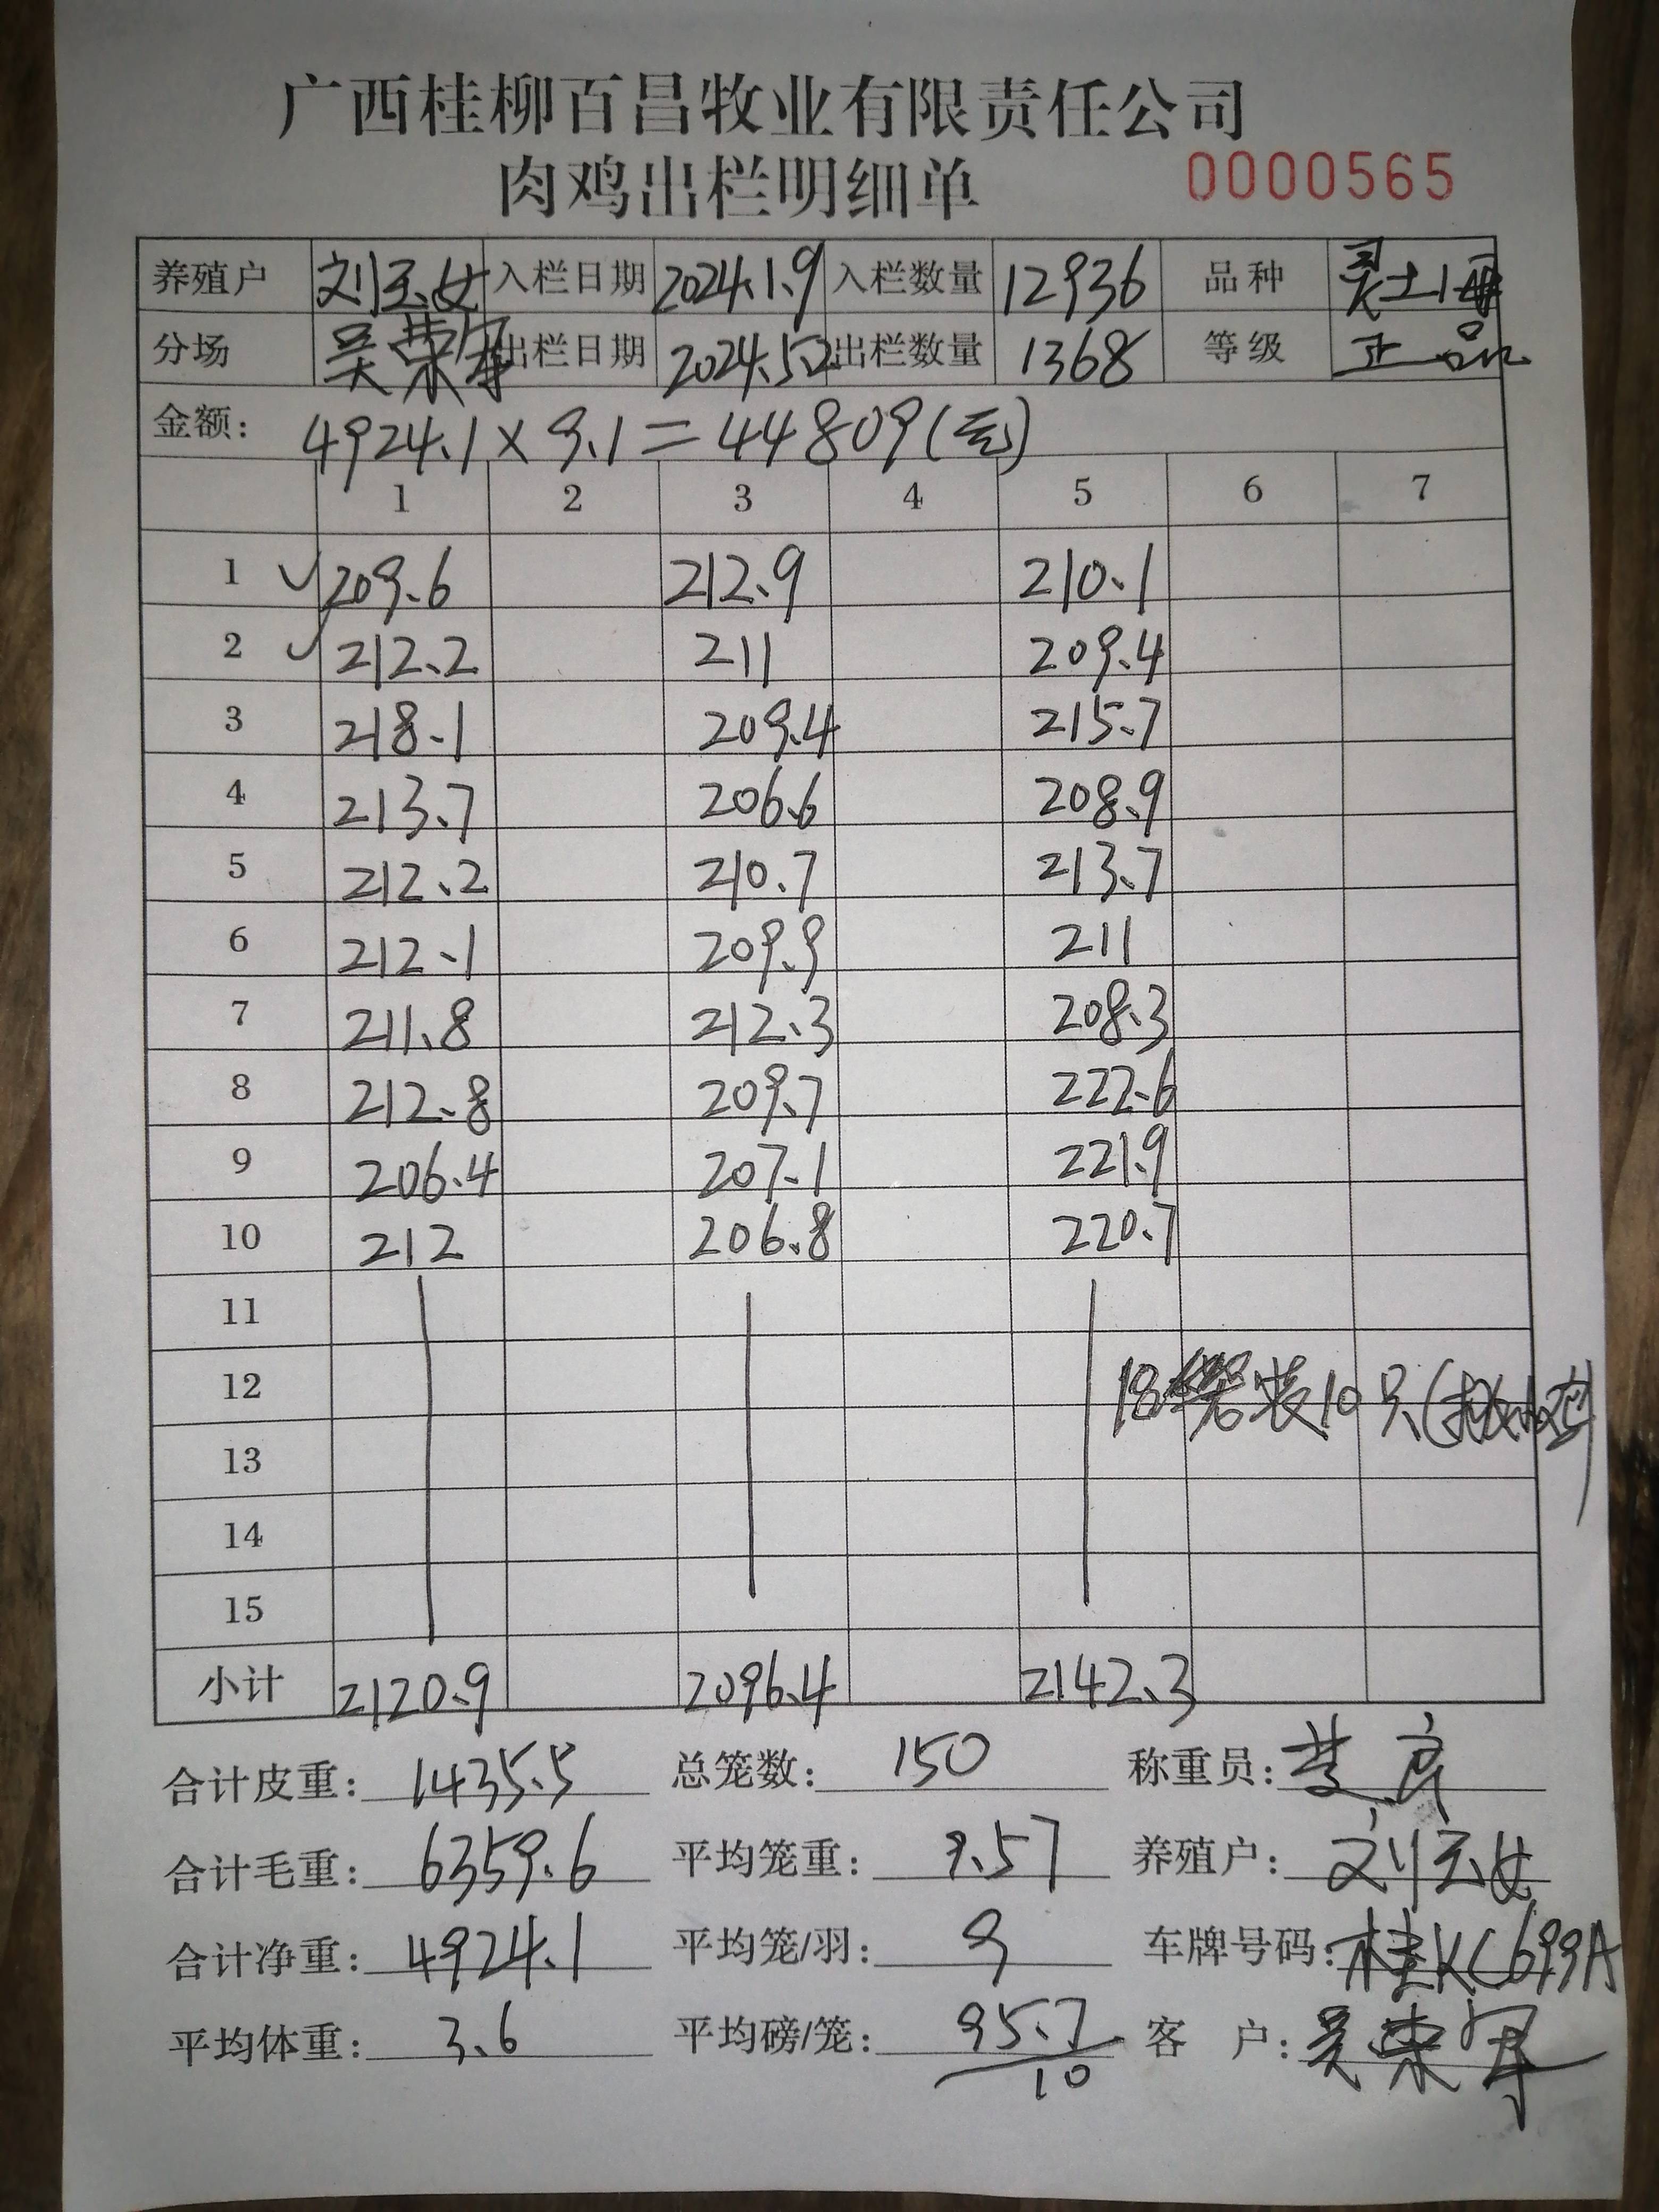 广西桂柳百昌牧业有限责任公司
肉鸡出栏明细单 0000565
养殖户 刘玉女 入栏日期 2024.1.9 入栏数量 12936 品种 土
分场 吴荣军 出栏日期 2024.5.2 出栏数量 1368 等级 正品
金额: 4924.1×9.1=44809(元)
1 2 3 4 5 6 7
1 209.6 212.9 210.1
2 212.2 211 209.4
3 218.1 209.4 215.7
4 213.7 206.6 208.9
5 212.2 210.7 213.7
6 212.1 209.9 211
7 211.8 212.3 208.3
8 212.8 209.7 222.6
9 206.4 207.1 221.9
10 212 206.8 220.7
11
12 18 装10只
13
14
15
小计 2120.9 2096.4 2142.3
合计皮重: 1435.5 总笼数: 150 称重员:
合计毛重: 6359.6 平均笼重: 9.57 养殖户: 刘玉女
合计净重: 4924.1 平均笼/羽: 9 车牌号码: 桂KC699A
平均体重: 3.6 平均磅/笼: 95.7 客户: 吴荣军
10